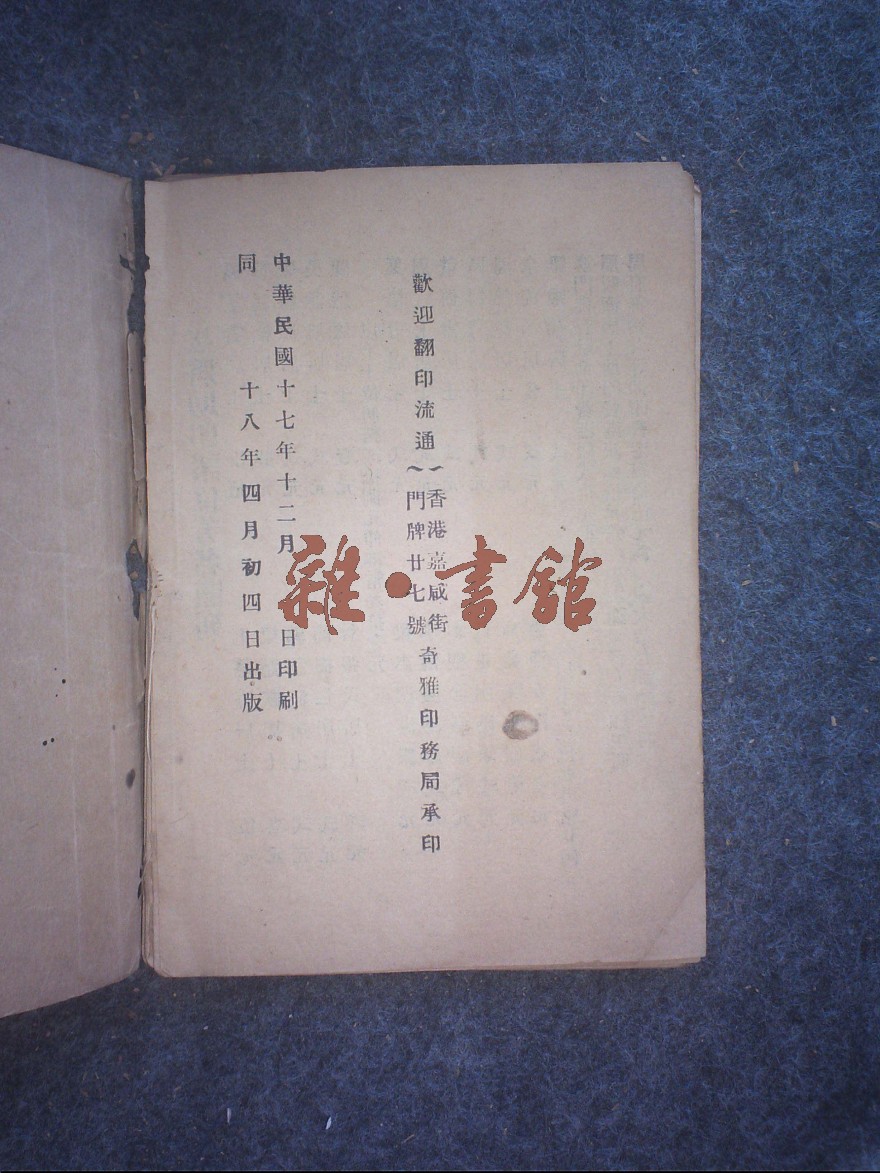 歡迎翻印流通
香港嘉咸街
門牌廿七號
奇雅印務局承印
中華民國十七年十二月 日印刷
同 十八年四月初四日出版
雜·書館